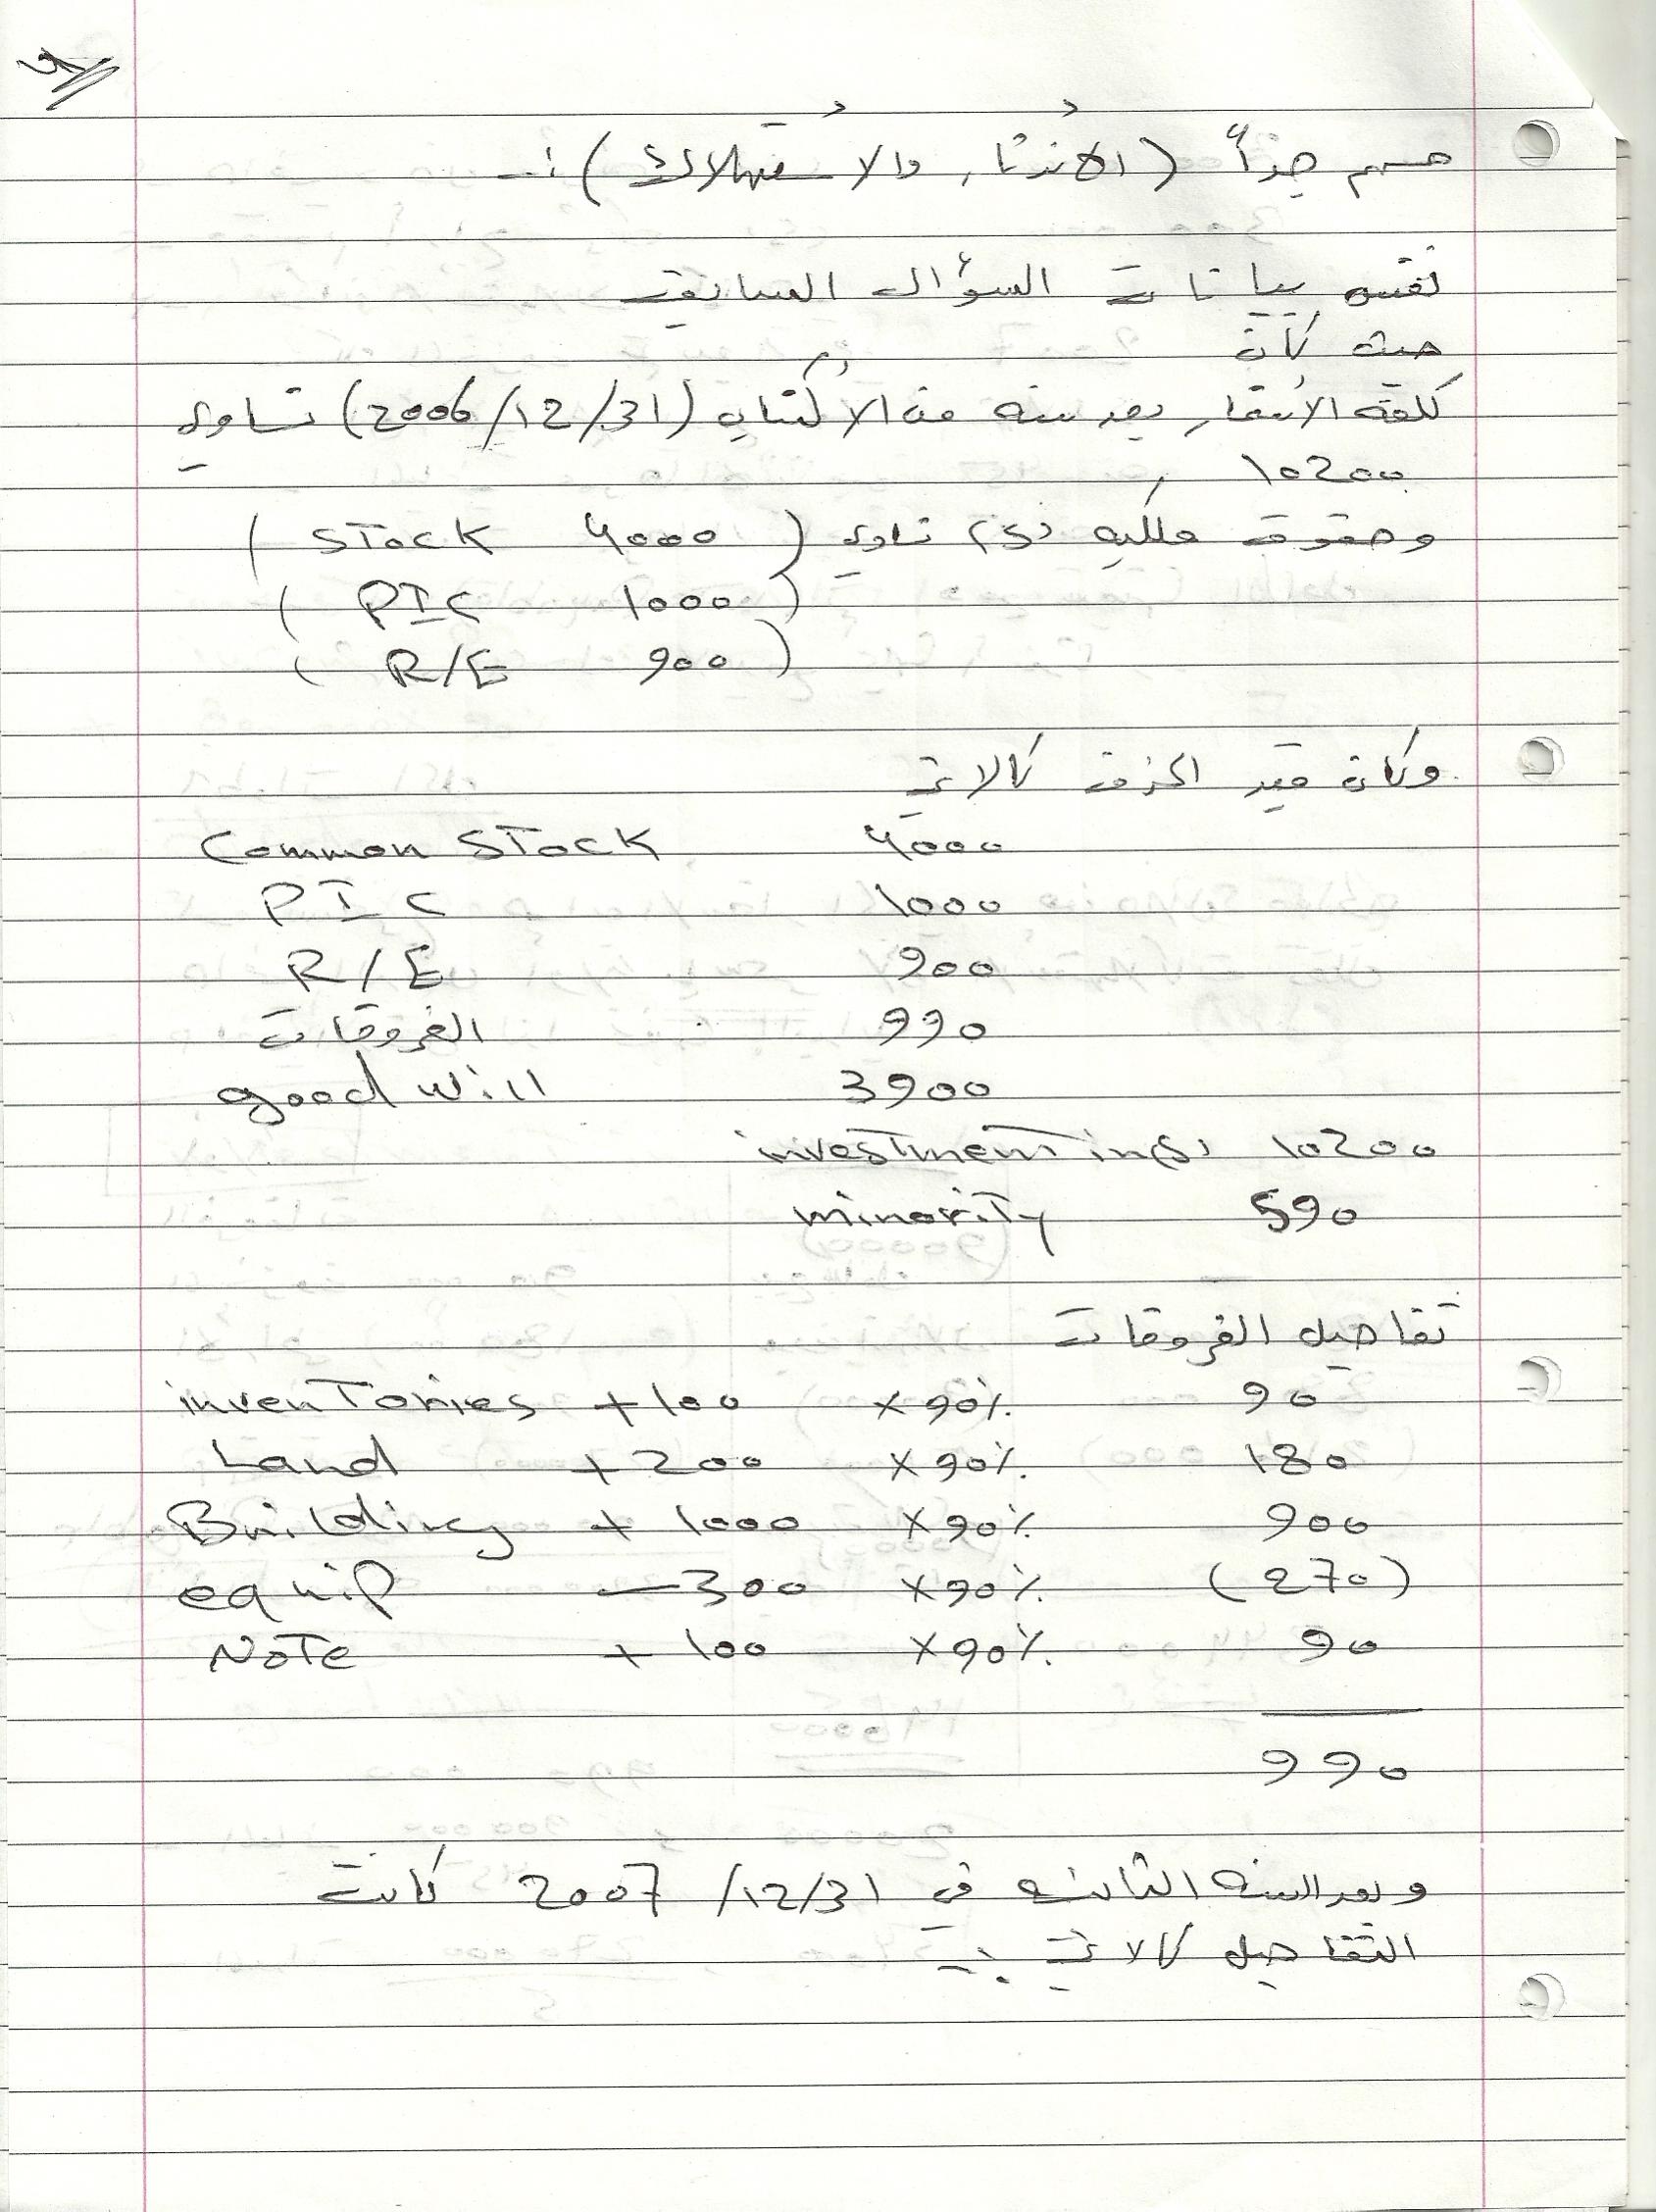 مهم جداً (الاندثار والاستهلاك) :-
نفس بيانات السؤال السابق
حيث كان
كلفة الاستثمار بعد سنه من الاكتتاب (2006/12/31) تساوي
10200
وحقوق ملكيه (S) تساوي (Stock 4000)
(PIC 1000)
(R/E 900)
وكان قيد الحذف كالاتي
Common Stock 4000
PIC 1000
R/E 900
الفروقات 990
good will 3900
investment in (S) 10200
minority 590
تفاصيل الفروقات
inventories +100 ×90% 90
Land +200 ×90% 180
Building + 1000 ×90% 900
equip -300 ×90% (270)
Note + 100 ×90% 90
990
وبعد السنه الثانيه في 2007/12/31 كانت
التفاصيل كالاتي :-